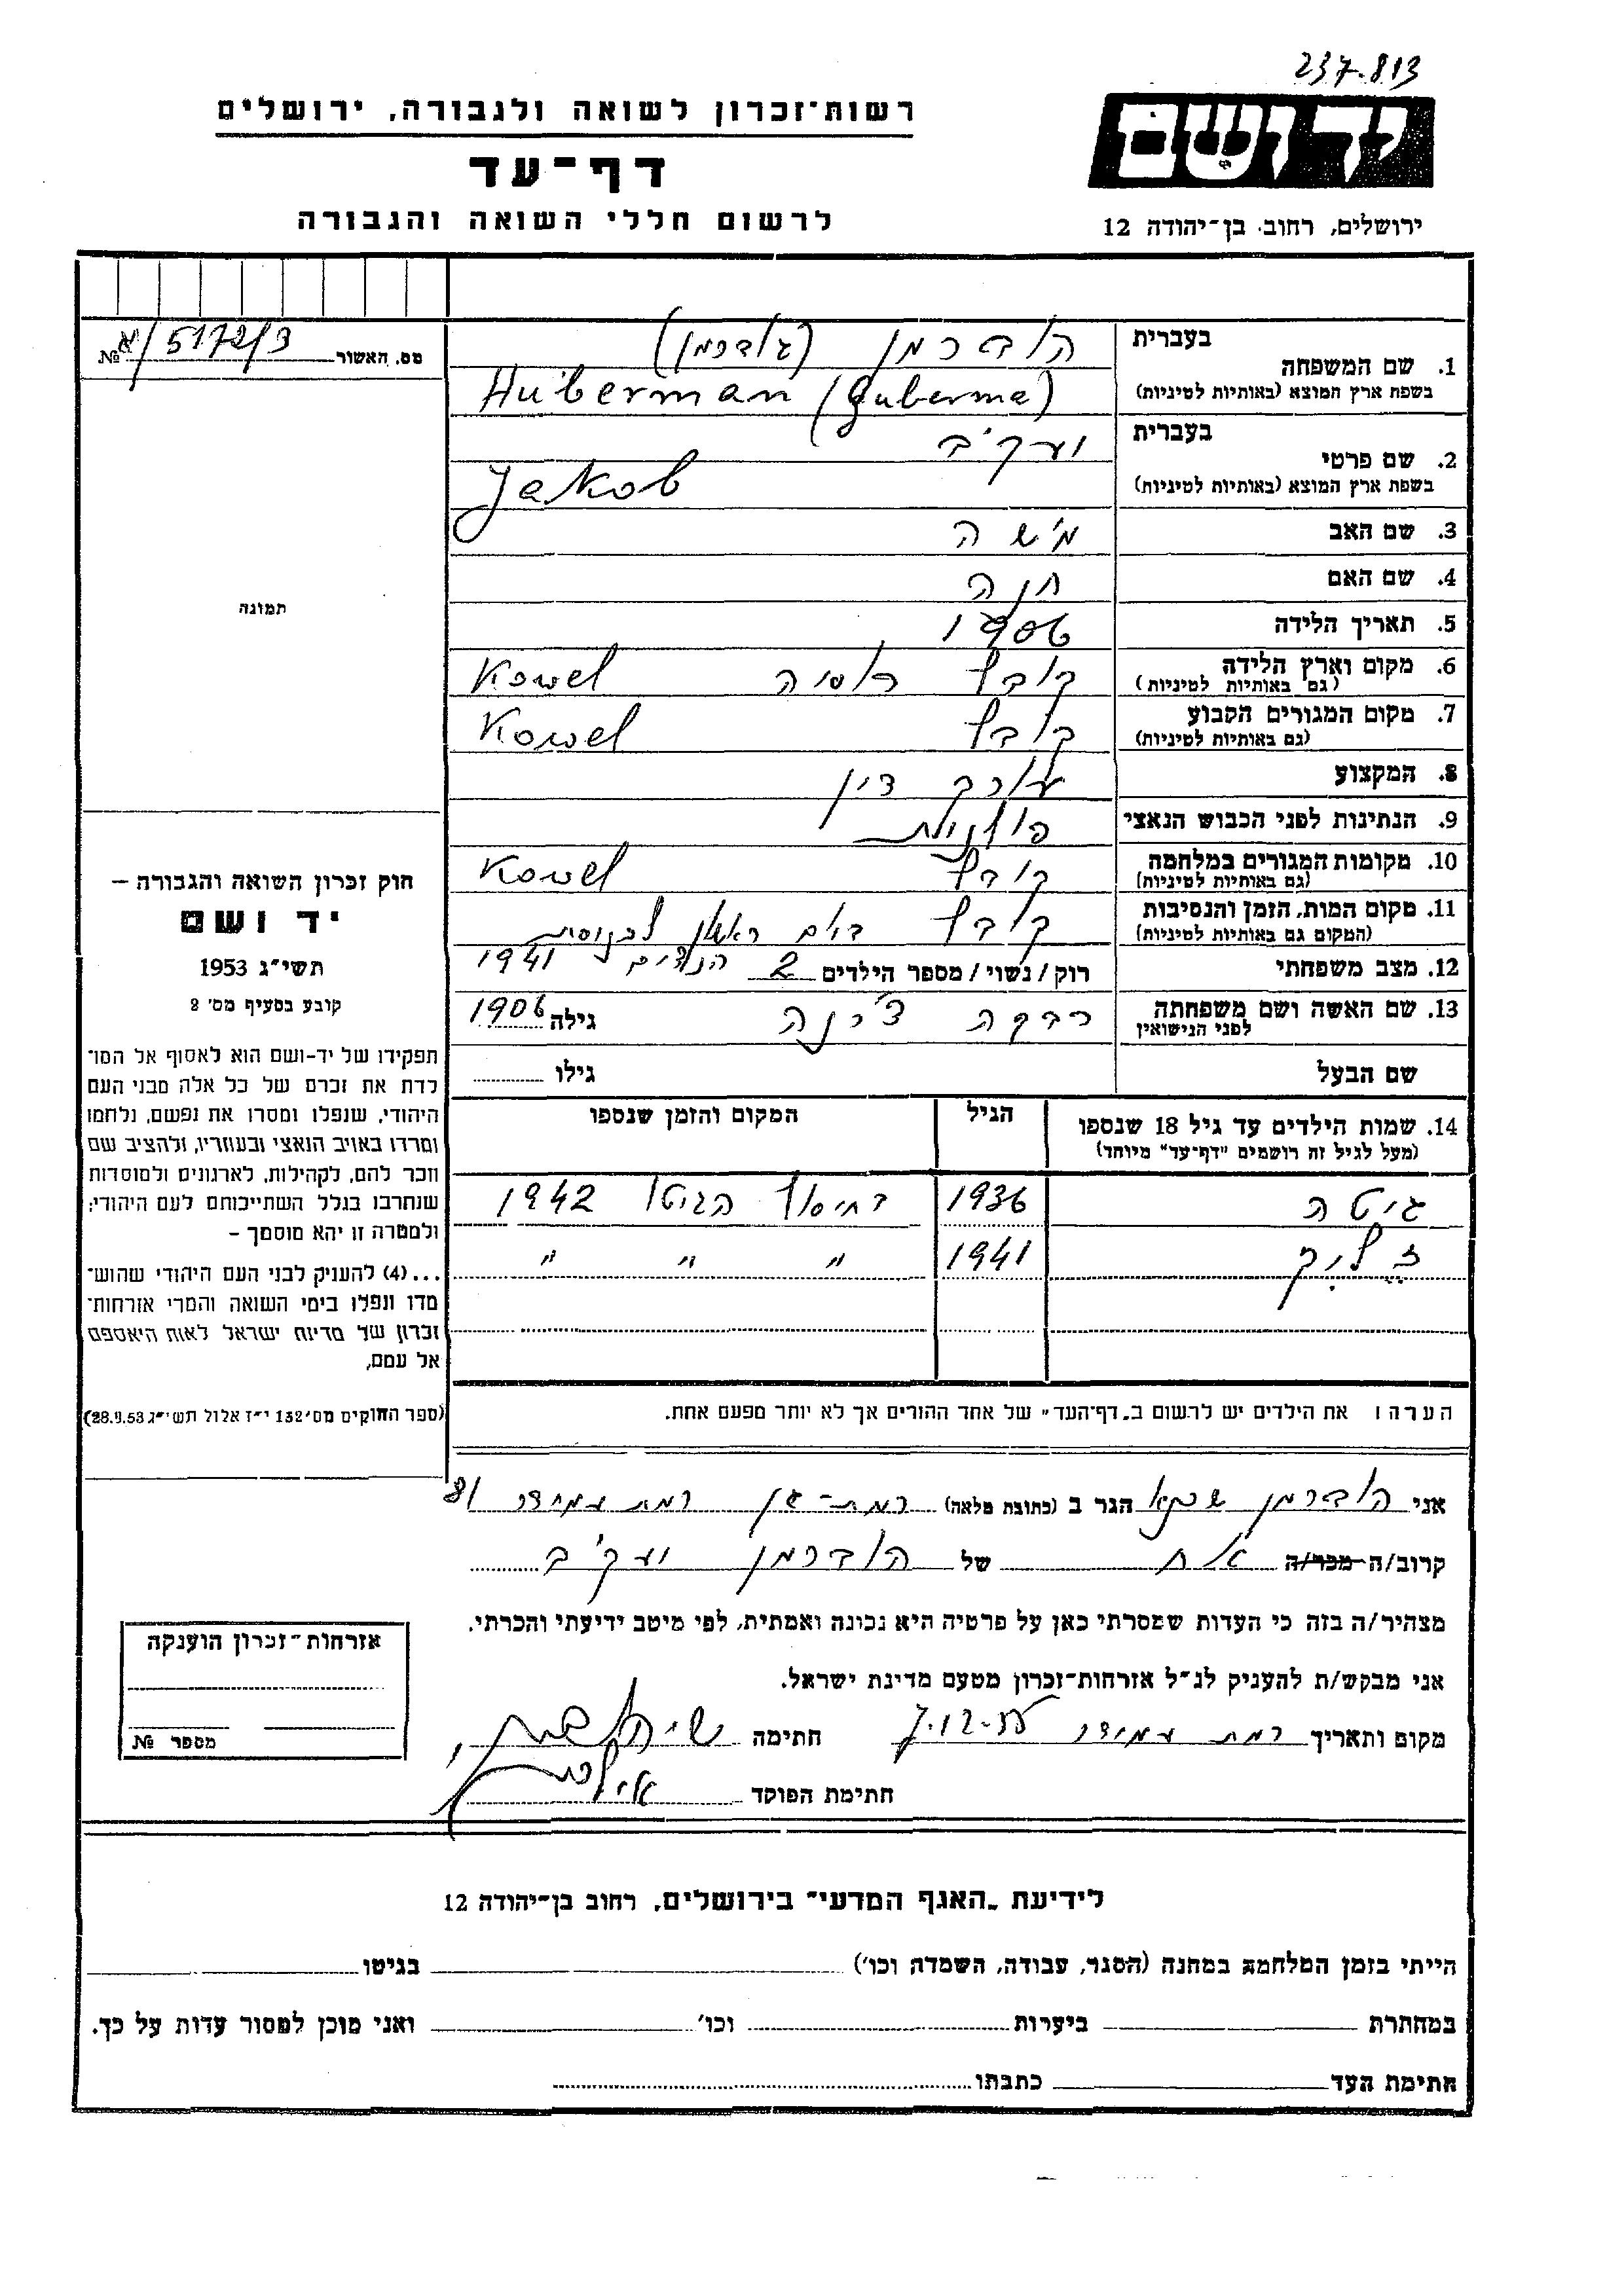 237.813
רשות־זכרון לשואה ולגבורה, ירושלים
דף־עד
לרשום חללי השואה והגבורה
יד ושם
ירושלים, רחוב בן־יהודה 12
מס. האשור 5172/3/א №
תמונה
חוק זכרון השואה והגבורה –
יד ושם
תשי״ג 1953
קובע בסעיף מס׳ 2
תפקידו של יד-ושם הוא לאסוף אל המו־
לדת את זכרם של כל אלה מבני העם
היהודי, שנפלו ומסרו את נפשם, נלחמו
ומרדו באויב הנאצי ובעוזריו, ולהציב שם
וזכר להם, לקהילות, לארגונים ולמוסדות
שנחרבו בגלל השתייכותם לעם היהודי;
ולמטרה זו יהא מוסמך –
...(4) להעניק לבני העם היהודי שהוש־
מדו ונפלו בימי השואה והמרי אזרחות־
זכרון של מדינת ישראל לאות היאספם
אל עמם.
(ספר החוקים מס׳ 132 י״ז אלול תשי״ג 28.8.53)
בעברית הוברמן (גוברמן)
1. שם המשפחה
בשפת ארץ המוצא (באותיות לטיניות) Huberman (Guberma)
בעברית יעקיב
2. שם פרטי
בשפת ארץ המוצא (באותיות לטיניות) Jakob
3. שם האב משה
4. שם האם חנה
5. תאריך הלידה 1906
6. מקום וארץ הלידה קובל רוסיה Kowel
(גם באותיות לטיניות)
7. מקום המגורים הקבוע קובל Kowel
(גם באותיות לטיניות)
8. המקצוע עורך דין
9. הנתינות לפני הכבוש הנאצי פולנית
10. מקומות המגורים במלחמה קובל Kowel
(גם באותיות לטיניות)
11. מקום המות, הזמן והנסיבות קובל ביום ראשון לכניסת
(המקום גם באותיות לטיניות)
הנאצים 1941
12. מצב משפחתי רוק / נשוי / מספר הילדים 2
13. שם האשה ושם משפחתה רבקה צ׳רנה גילה 1906
לפני הנישואין
שם הבעל גילו
14. שמות הילדים עד גיל 18 שנספו הגיל המקום והזמן שנספו
(מעל לגיל זה רושמים ״דף־עד״ מיוחד)
גיטה 1936 בחיסול הגיטו 1942
זליק 1941 " " "
הערה: את הילדים יש לרשום ב„דף־העד״ של אחד ההורים אך לא יותר מפעם אחת.
אני הוברמן הגר ב (כתובת מלאה) רמת-גן רמת עמידר 81
קרוב/ה מכר/ה אח של הוברמן יעקיב
מצהיר/ה בזה כי העדות שמסרתי כאן על פרטיה היא נכונה ואמתית, לפי מיטב ידיעתי והכרתי.
אני מבקש/ת להעניק לנ״ל אזרחות־זכרון מטעם מדינת ישראל.
מקום ותאריך רמת עמידר 7.12.55 חתימה
חתימת הפוקד
אזרחות־זכרון הוענקה
מספר №
לידיעת „האגף המדעי״ בירושלים, רחוב בן־יהודה 12
הייתי בזמן המלחמה במחנה (הסגר, עבודה, השמדה וכו׳) בגיטו
במחתרת ביערות וכו׳ ואני מוכן למסור עדות על כך.
חתימת העד כתבתו